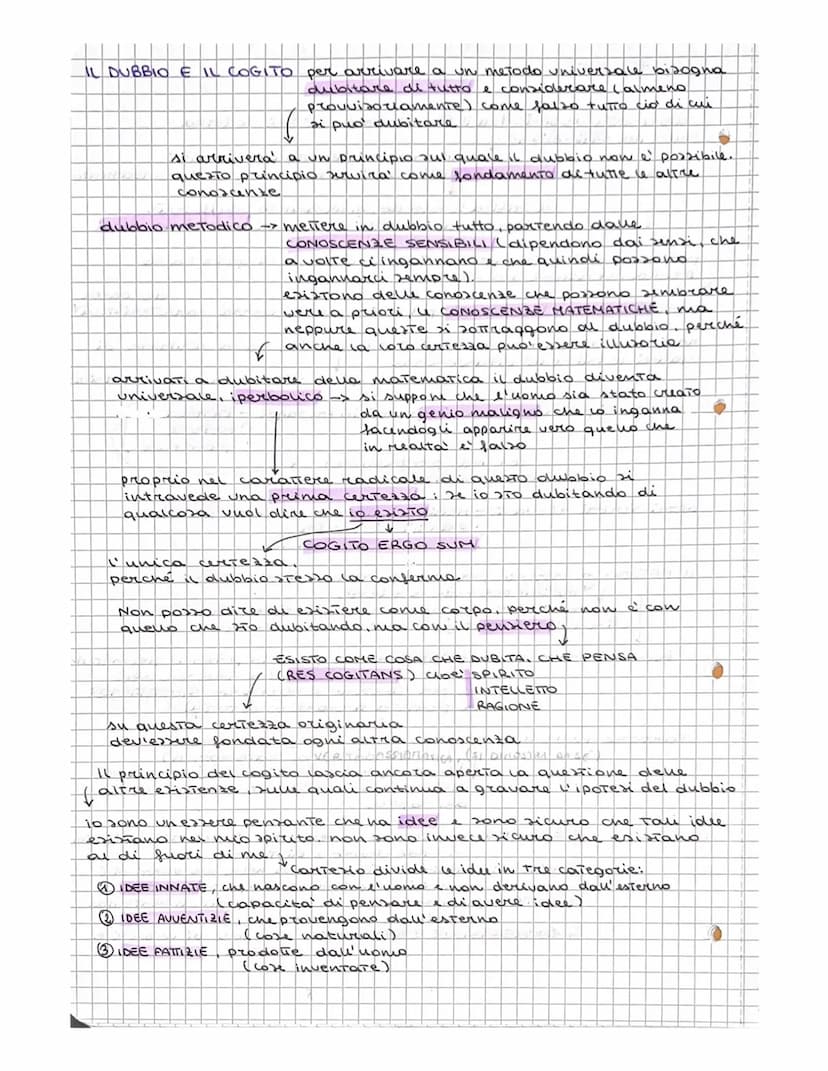 IL DUBBIO E IL COGITO per arrivare a un metodo universale bisogna
dubitare di tutto e considerare (almeno
provvisoriamente) come falso tutto ciò di cui
si può dubitare
si arriverà a un principio sul quale il dubbio non è possibile.
questo principio servirà come fondamento di tutte le altre
conoscenze
dubbio metodico → mettere in dubbio tutto, partendo dalle
CONOSCENZE SENSIBILI (dipendono dai sensi, che
a volte ci ingannano e che quindi possono
ingannarci sempre).
esistono delle conoscenze che possono sembrare
vere a priori, le CONOSCENZE MATEMATICHE, ma
neppure queste si sottraggono al dubbio, perché
anche la loro certezza può essere illusoria
arrivati a dubitare della matematica il dubbio diventa
universale, iperbolico → si suppone che l'uomo sia stato creato
da un genio maligno che lo inganna
facendogli apparire vero quello che
in realtà è falso
proprio nel carattere radicale di questo dubbio si
intravede una prima certezza: se io sto dubitando di
qualcosa vuol dire che io esisto
COGITO ERGO SUM
l'unica certezza,
perché il dubbio stesso la conferma
Non posso dire di esistere come corpo, perché non è con
quello che sto dubitando, ma con il pensiero,
ESISTO COME COSA CHE DUBITA, CHE PENSA
(RES COGITANS) cioè SPIRITO
INTELLETTO
RAGIONE
su questa certezza originaria
dev'essere fondata ogni altra conoscenza
Il principio del cogito lascia ancora aperta la questione delle
altre esistenze, sulle quali continua a gravare l'ipotesi del dubbio
io sono un essere pensante che ha idee e sono sicuro che tali idee
esistano nel mio spirito. non sono invece sicuro che esistano
al di fuori di me
Cartesio divide le idee in tre categorie:
① IDEE INNATE, che nascono con l'uomo e non derivano dall'esterno
(capacità di pensare e di avere idee)
② IDEE AVVENTIZIE, che provengono dall'esterno
(cose naturali)
③ IDEE FATTIZIE, prodotte dall'uomo
(cose inventate)